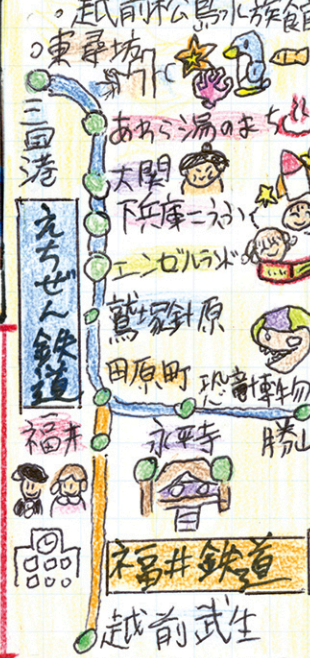 越前松島水族館
東尋坊
三国港
あわら湯のまち
大関
下兵庫こうふく
エンゼルランド
鷲塚針原
えちぜん鉄道
田原町
恐竜博物
福井
永平寺
勝山
福井鉄道
越前武生